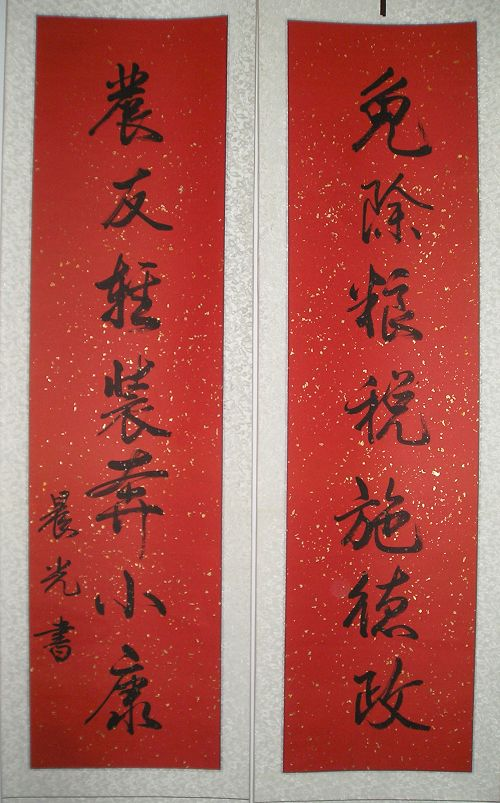 免除粮税施德政
農友軽装奔小康
晨光書